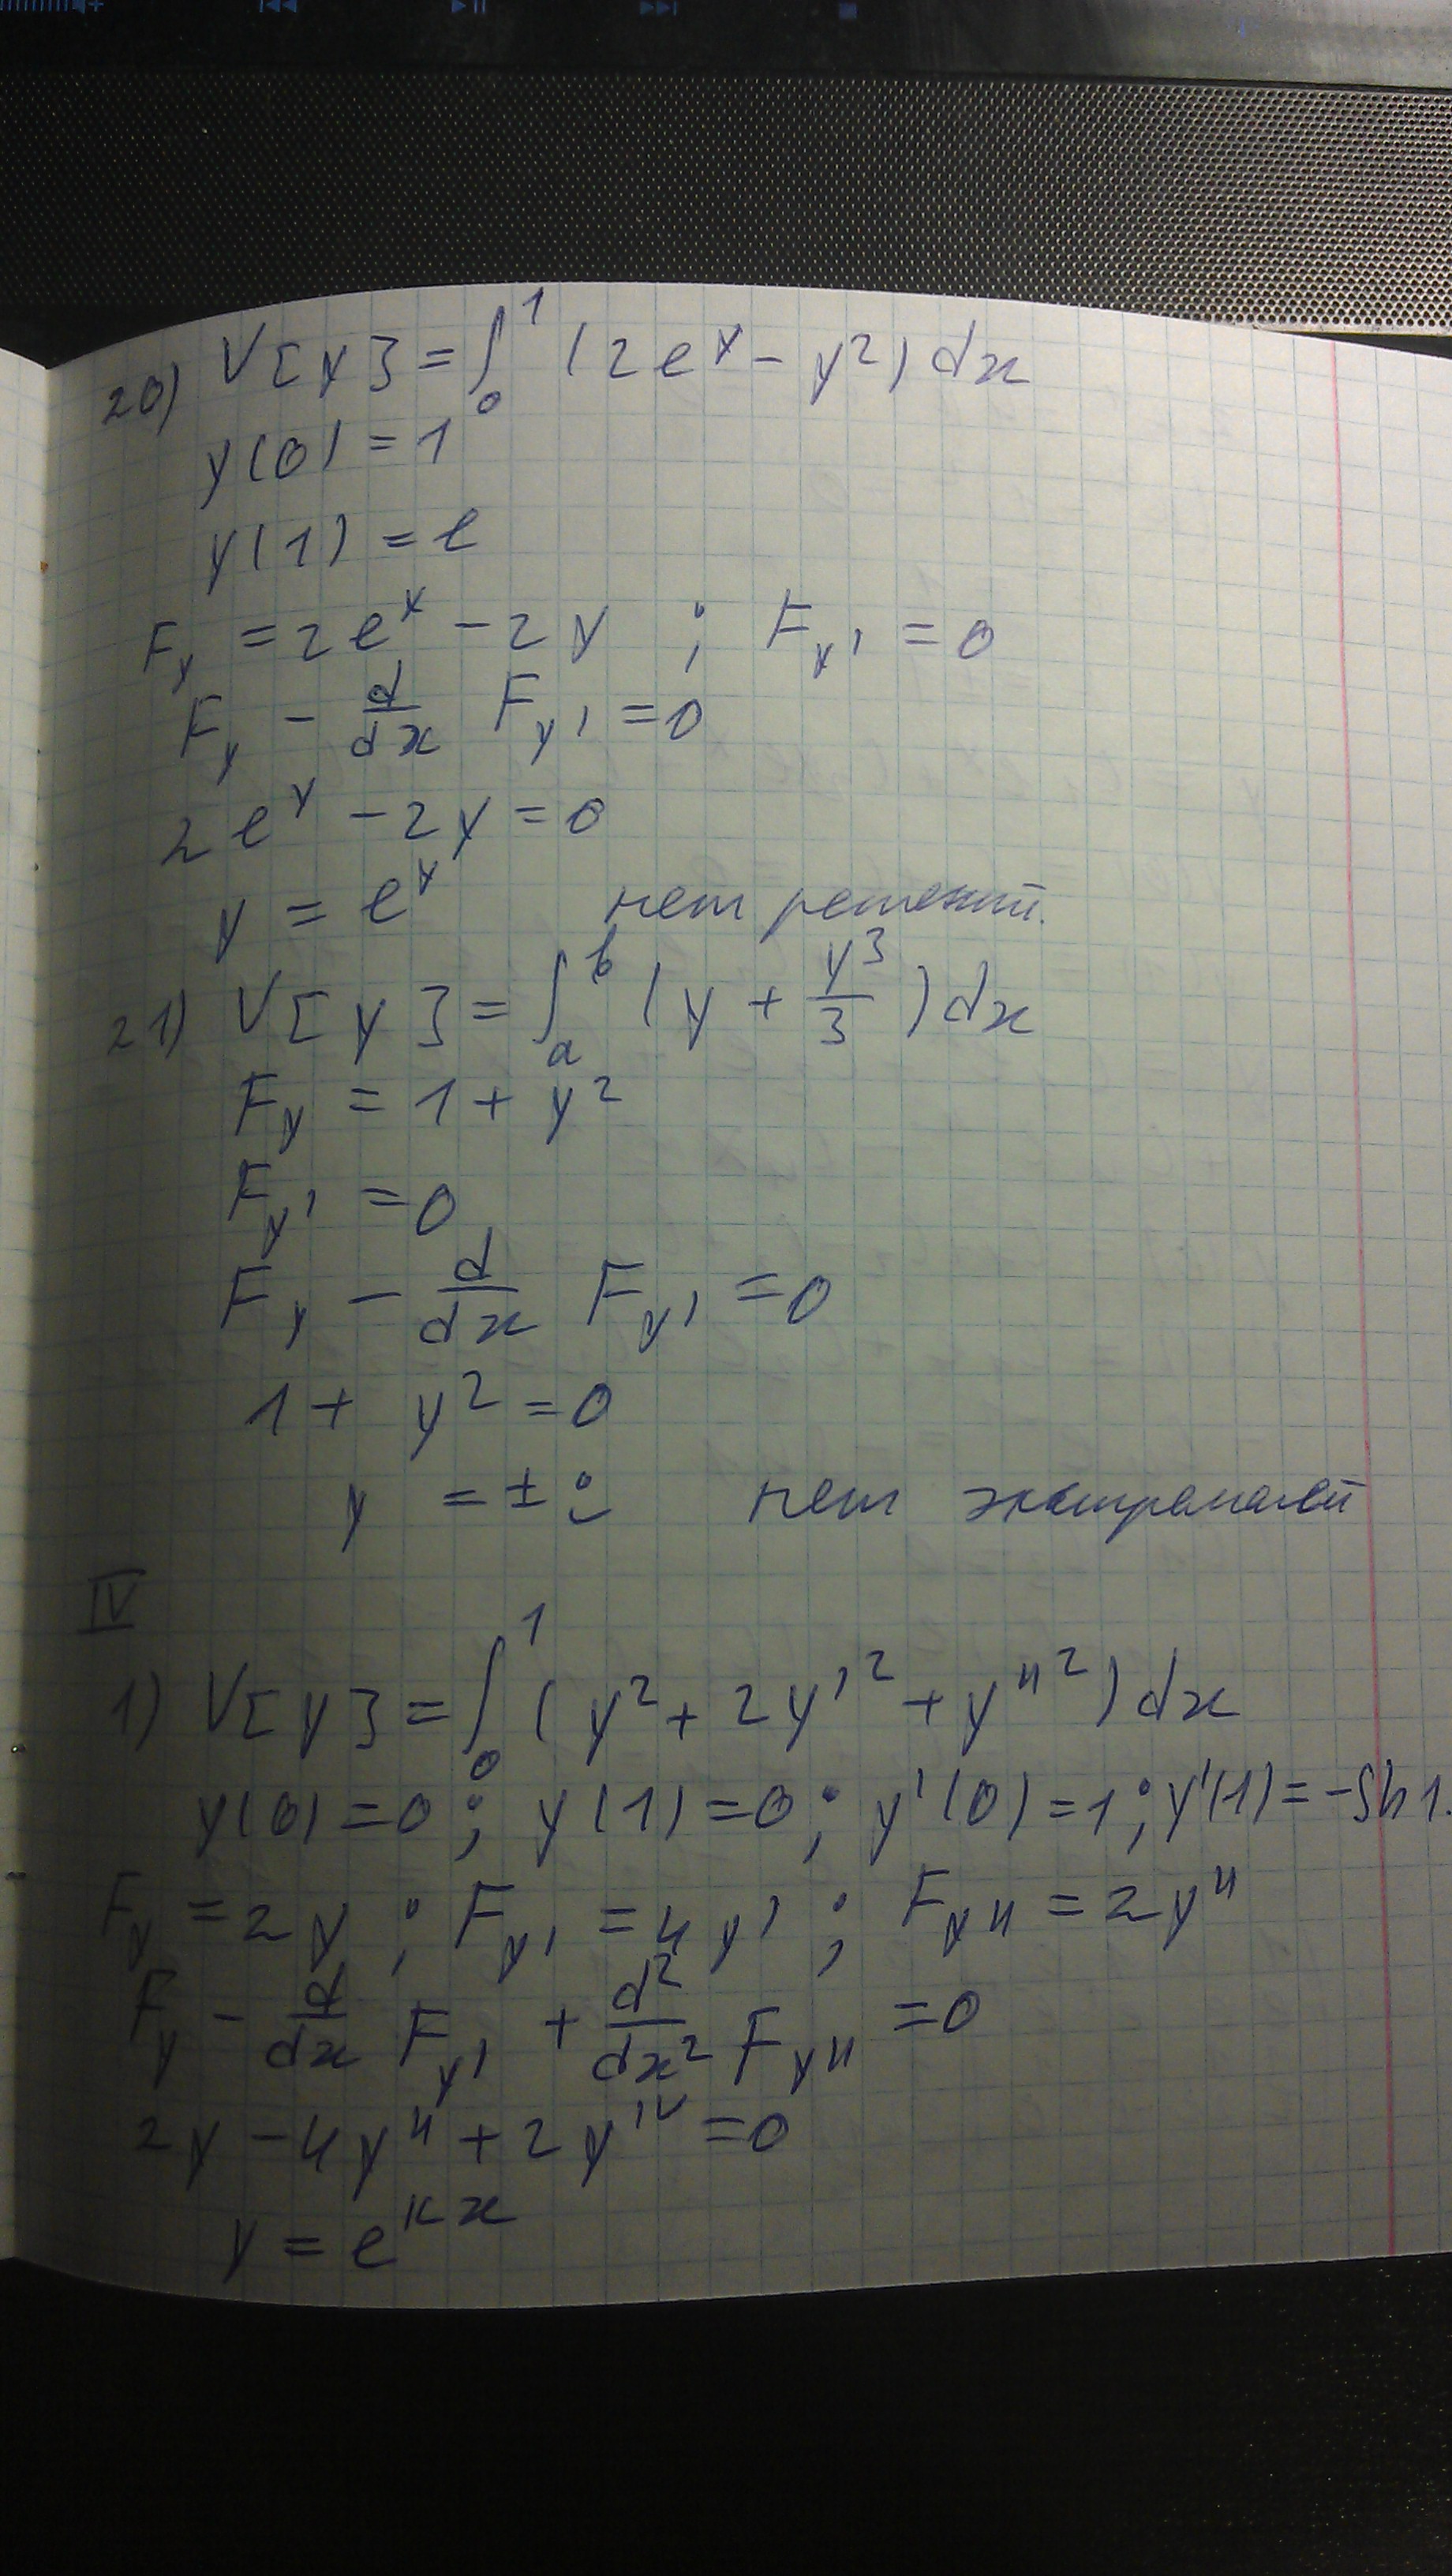 20) V[y] = ∫₀¹ (2e^y - y²) dx
y(0) = 1
y(1) = e
F_y = 2e^y - 2y ; F_y' = 0
F_y - d/dx F_y' = 0
2e^y - 2y = 0
y = e^y нет решений.
21) V[y] = ∫ₐᵇ (y + y³/3) dx
F_y = 1 + y²
F_y' = 0
F_y - d/dx F_y' = 0
1 + y² = 0
y = ± i нет экстремалей
IV
1) V[y] = ∫₀¹ (y² + 2y'² + y''²) dx
y(0) = 0 ; y(1) = 0 ; y'(0) = 1 ; y'(1) = -sh1.
F_y = 2y ; F_y' = 4y' ; F_y'' = 2y''
F_y - d/dx F_y' + d²/dx² F_y'' = 0
2y - 4y'' + 2y^IV = 0
y = e^kx